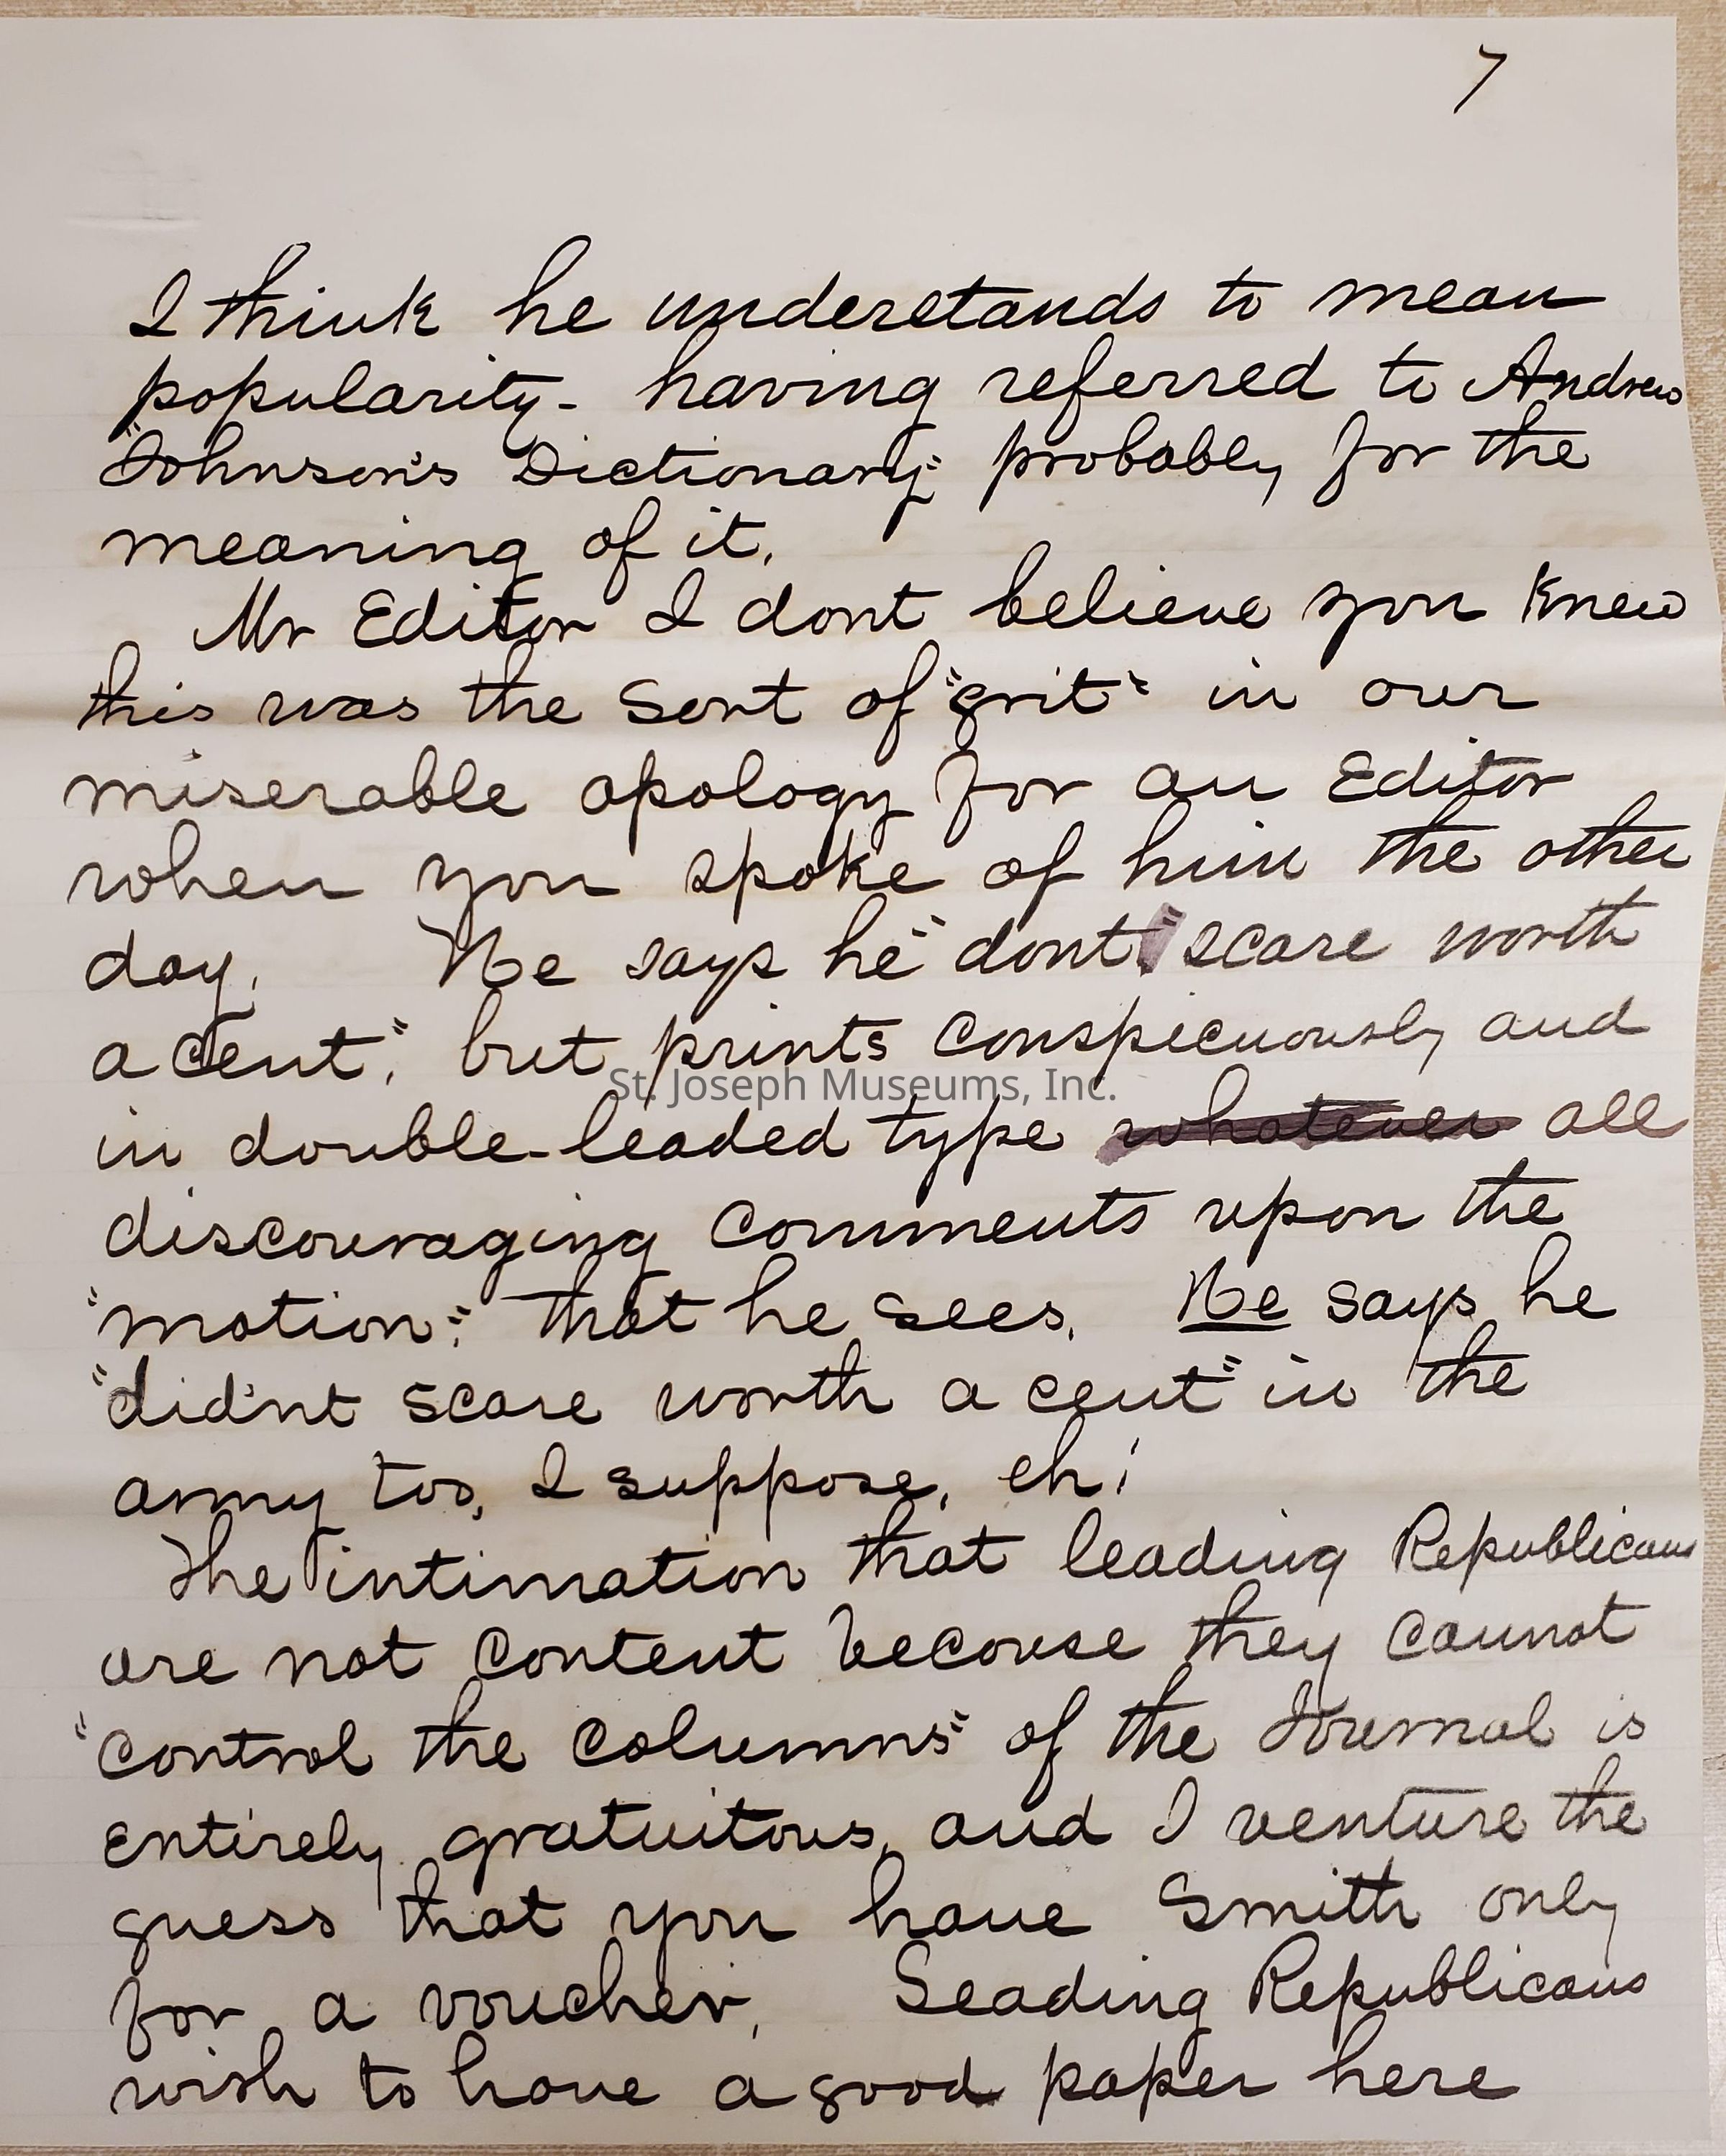 7
I think he understands to mean
popularity - having referred to Andrew
"Johnson's Dictionary" probably for the
meaning of it.
Mr Editor I dont believe you knew
this was the sort of "grit" in our
miserable apology for an Editor
when you spoke of him the other
day. He says he "dont "scare worth
a cent", but prints conspicuously and
in double-leaded type whatever all
discouraging comments upon the
"motion" that he sees. He says he
"did'nt scare worth a cent" in the
army too, I suppose, eh!
The intimation that leading Republicans
are not content because they cannot
"control the columns" of the Journal is
entirely gratuitous, and I venture the
guess that you have Smith only
for a voucher. Leading Republicans
wish to have a good paper here
St. Joseph Museums, Inc.